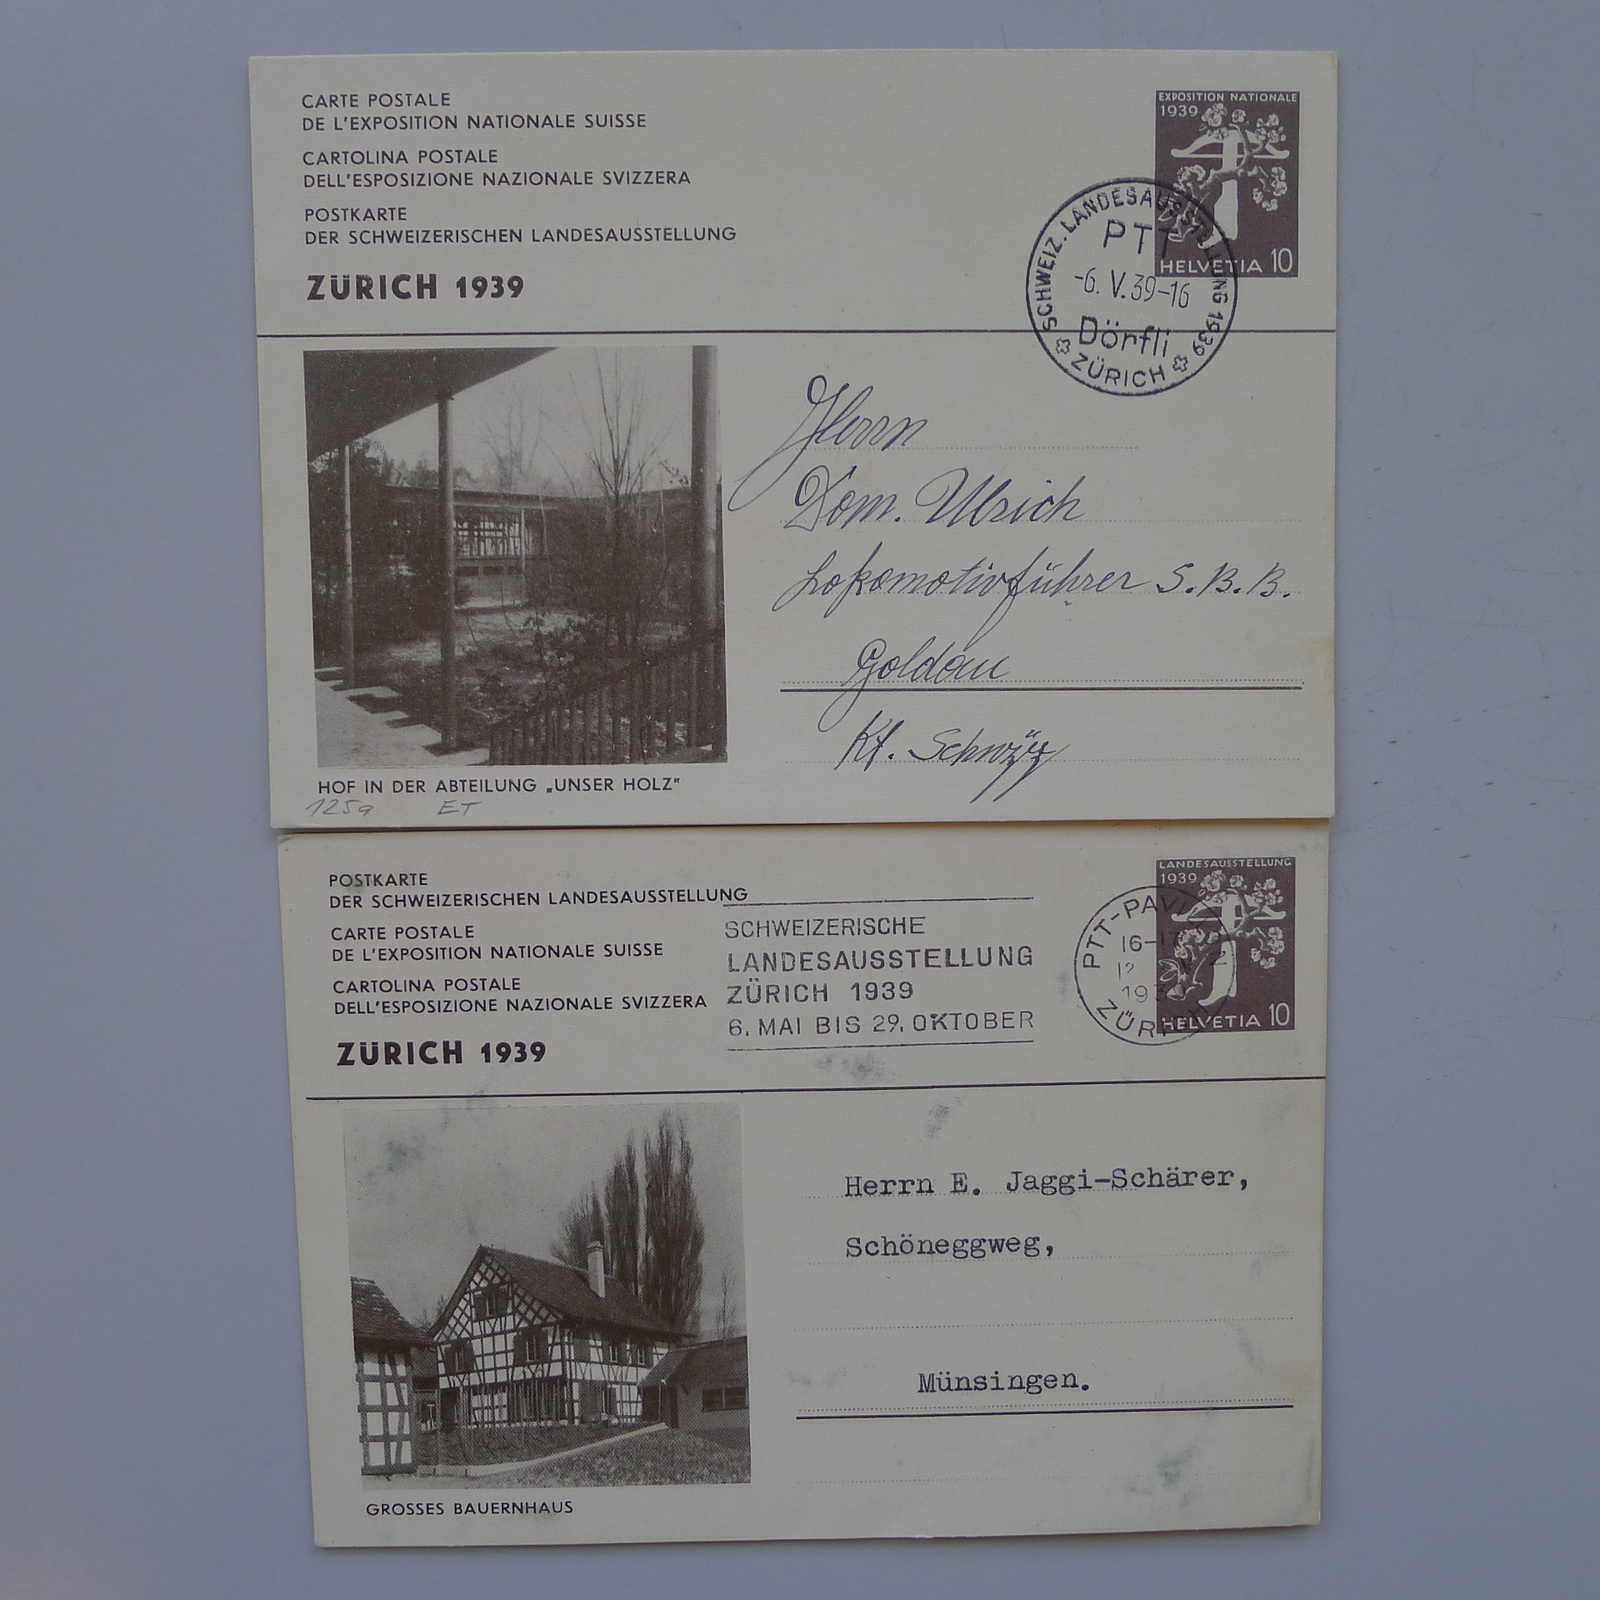 CARTE POSTALE
DE L'EXPOSITION NATIONALE SUISSE
CARTOLINA POSTALE
DELL'ESPOSIZIONE NAZIONALE SVIZZERA
POSTKARTE
DER SCHWEIZERISCHEN LANDESAUSSTELLUNG
ZÜRICH 1939
EXPOSITION NATIONALE
1939
HELVETIA 10
SCHWEIZ. LANDESAUSSTELLUNG 1939
PTT
-6. V. 39-16
Dörfli
ZÜRICH
Herrn
Dom. Ulrich
Lokomotivführer S.B.B.
Goldau
Kt. Schwÿz
HOF IN DER ABTEILUNG „UNSER HOLZ"
125a ET
POSTKARTE
DER SCHWEIZERISCHEN LANDESAUSSTELLUNG
CARTE POSTALE
DE L'EXPOSITION NATIONALE SUISSE
CARTOLINA POSTALE
DELL'ESPOSIZIONE NAZIONALE SVIZZERA
ZÜRICH 1939
SCHWEIZERISCHE
LANDESAUSSTELLUNG
ZÜRICH 1939
6. MAI BIS 29. OKTOBER
LANDESAUSSTELLUNG
1939
HELVETIA 10
Herrn E. Jaggi-Schärer,
Schöneggweg,
Münsingen.
GROSSES BAUERNHAUS